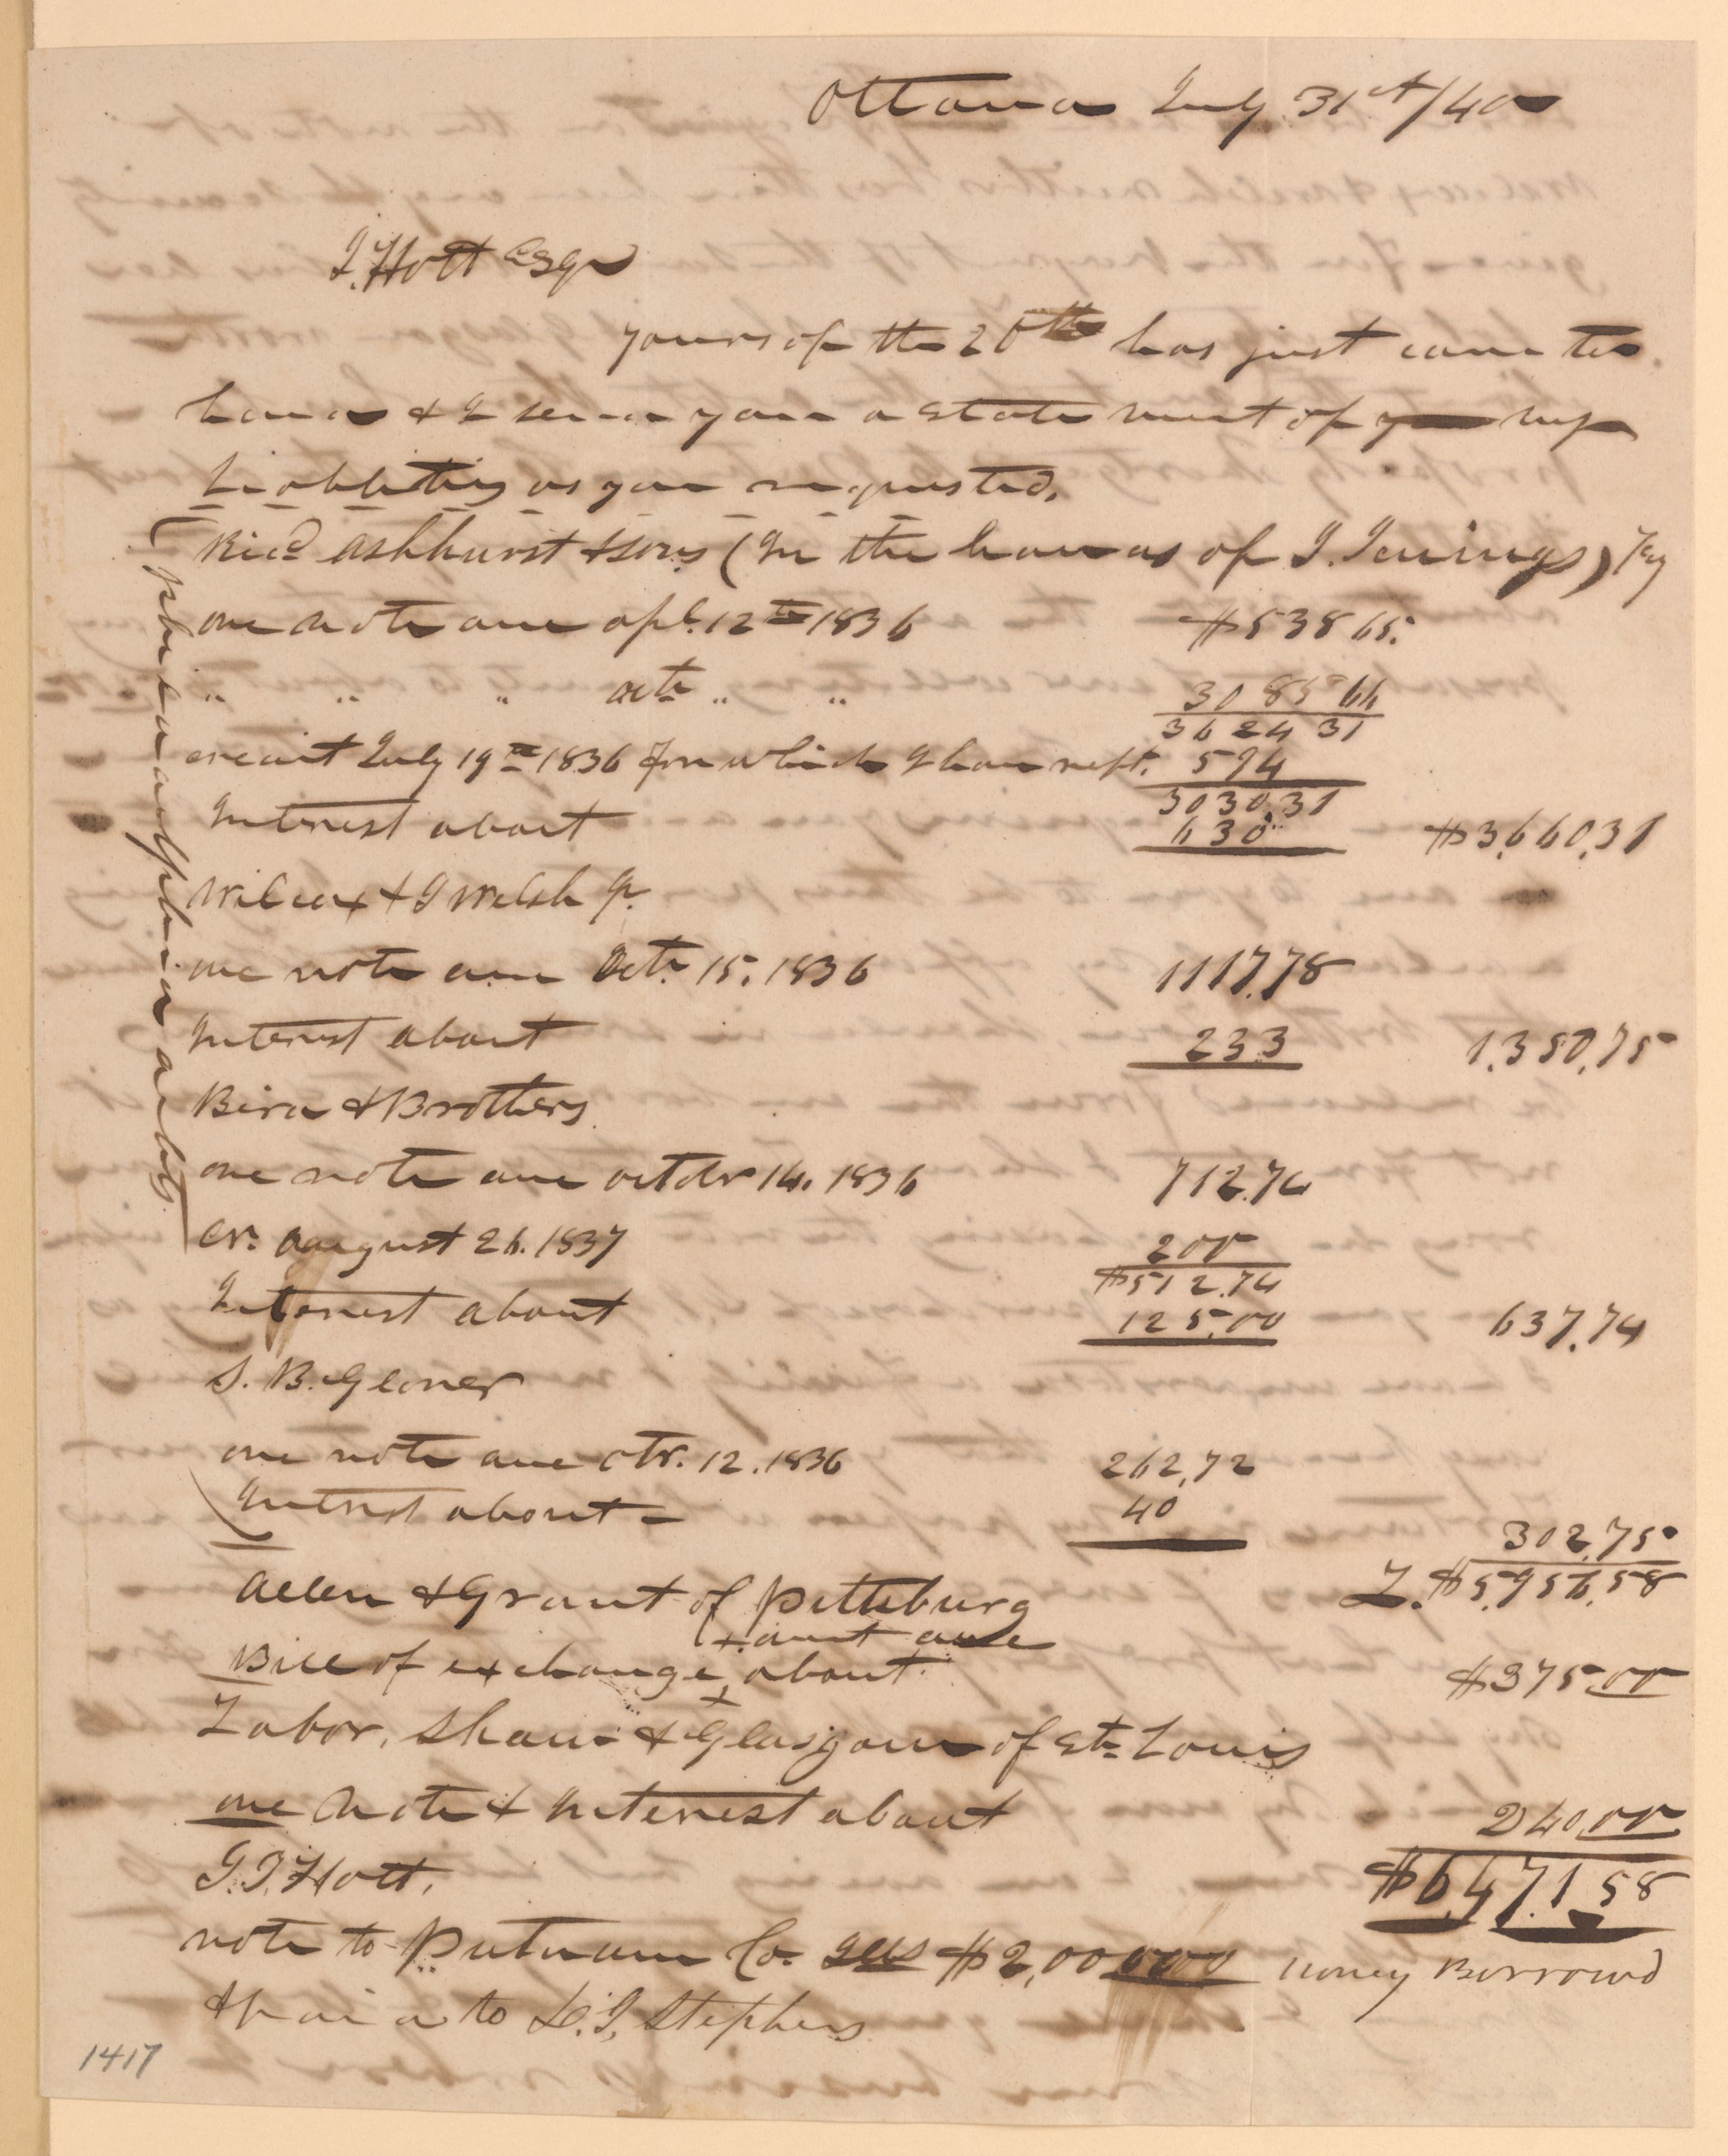 Ottawa July 31st/40
J. Hott Esqr
yours of the 20th has just come to
hand & I send you a state ment of my
Liablities as you requested,
Ricd Ashhurst & Sons (In the hands of J. Jenings)
one note due apl. 12th 1836 $538 65.
" " " octr " " 3085 66
3624 31
credit July 19th 1836 for which I have rept. 594
3030.31
Interest about 630 $3,660,31
Wilcox & J Welsh Jr.
one note due Octr. 15. 1836 1117.78
Interest about 233 1,350,75
Bird & Brothers
one note due octobr 14. 1836 712.74
Cr. August 26. 1837 200
$512.74
Interest about 125.00 637.74
S. B. Glover
one note due Otr. 12. 1836 262,72
Interest about 40
302,75
Allen & Grant of Pittsburg $5,956,58
amt due
Bill of exchange about $375.00
Labor, Shaw & Glasgow of St. Louis
one note & Interest about 240.00
G. J. Hott. $6,471.58
note to Putnam Co. $2,000 00 money Borrowd
& paid to L. J. Stephens
Philadalphia debts
1417